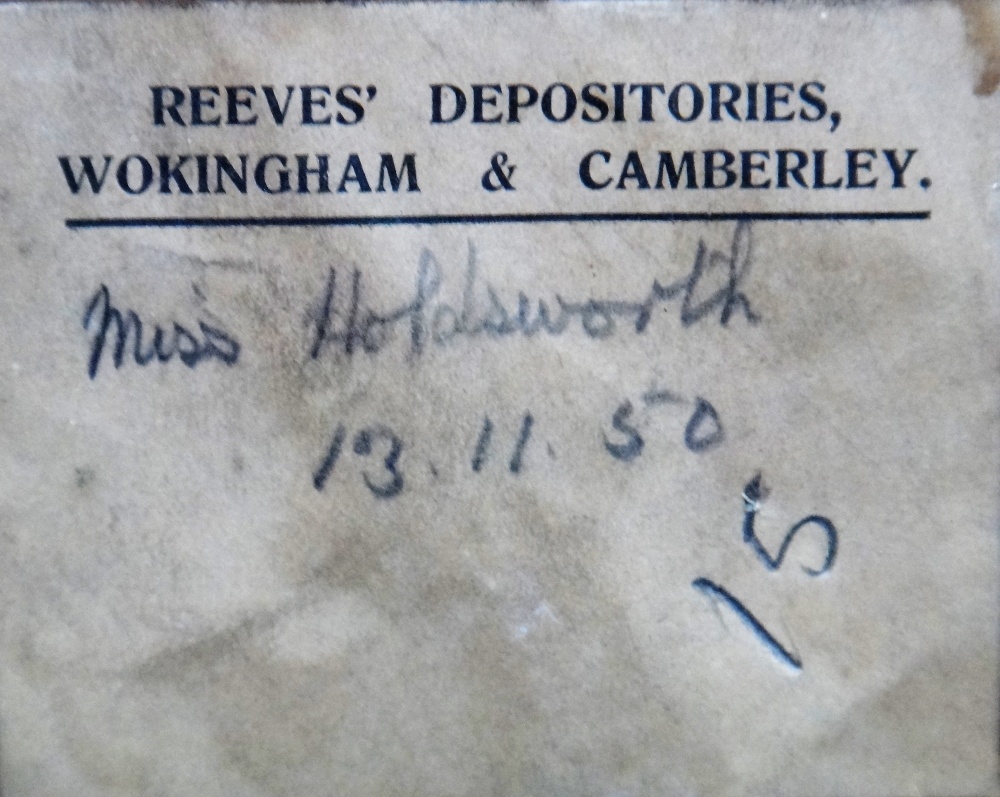 REEVES' DEPOSITORIES,
WOKINGHAM & CAMBERLEY.
Miss Holdsworth
13.11.50
15